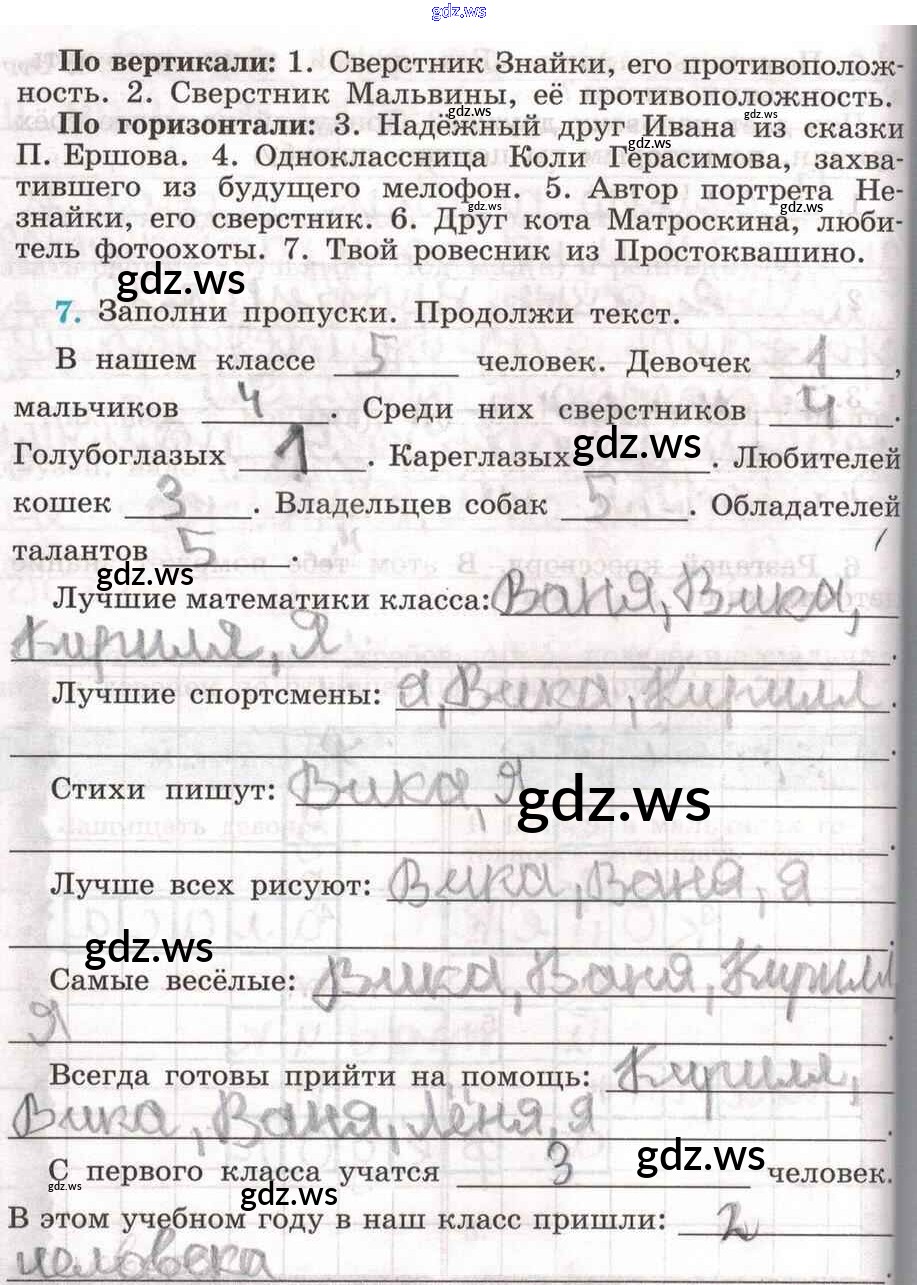 gdz.ws
По вертикали: 1. Сверстник Знайки, его противополож-
ность. 2. Сверстник Мальвины, её противоположность.
gdz.ws
По горизонтали: 3. Надёжный друг Ивана из сказки
gdz.ws
П. Ершова. 4. Одноклассница Коли Герасимова, захва-
тившего из будущего мелофон. 5. Автор портрета Не-
gdz.ws gdz.ws
знайки, его сверстник. 6. Друг кота Матроскина, люби-
тель фотоохоты. 7. Твой ровесник из Простоквашино.
gdz.ws
7. Заполни пропуски. Продолжи текст.
В нашем классе 5 человек. Девочек 1,
мальчиков 4. Среди них сверстников 4.
Голубоглазых 1. Кареглазых gdz.ws. Любителей
кошек 3. Владельцев собак 5. Обладателей
талантов 5.
gdz.ws
Лучшие математики класса: Ваня, Вика,
Кирилл, Я.
Лучшие спортсмены: Я, Вика, Кирилл.
Стихи пишут: Вика, Я
gdz.ws
Лучше всех рисуют: Вика, Ваня, Я
gdz.ws
Самые весёлые: Вика, Ваня, Кирилл
Я.
Всегда готовы прийти на помощь: Кирилл,
Вика, Ваня, Лёня, Я.
С первого класса учатся 3 gdz.ws человек.
gdz.ws gdz.ws
В этом учебном году в наш класс пришли: 2
человека.